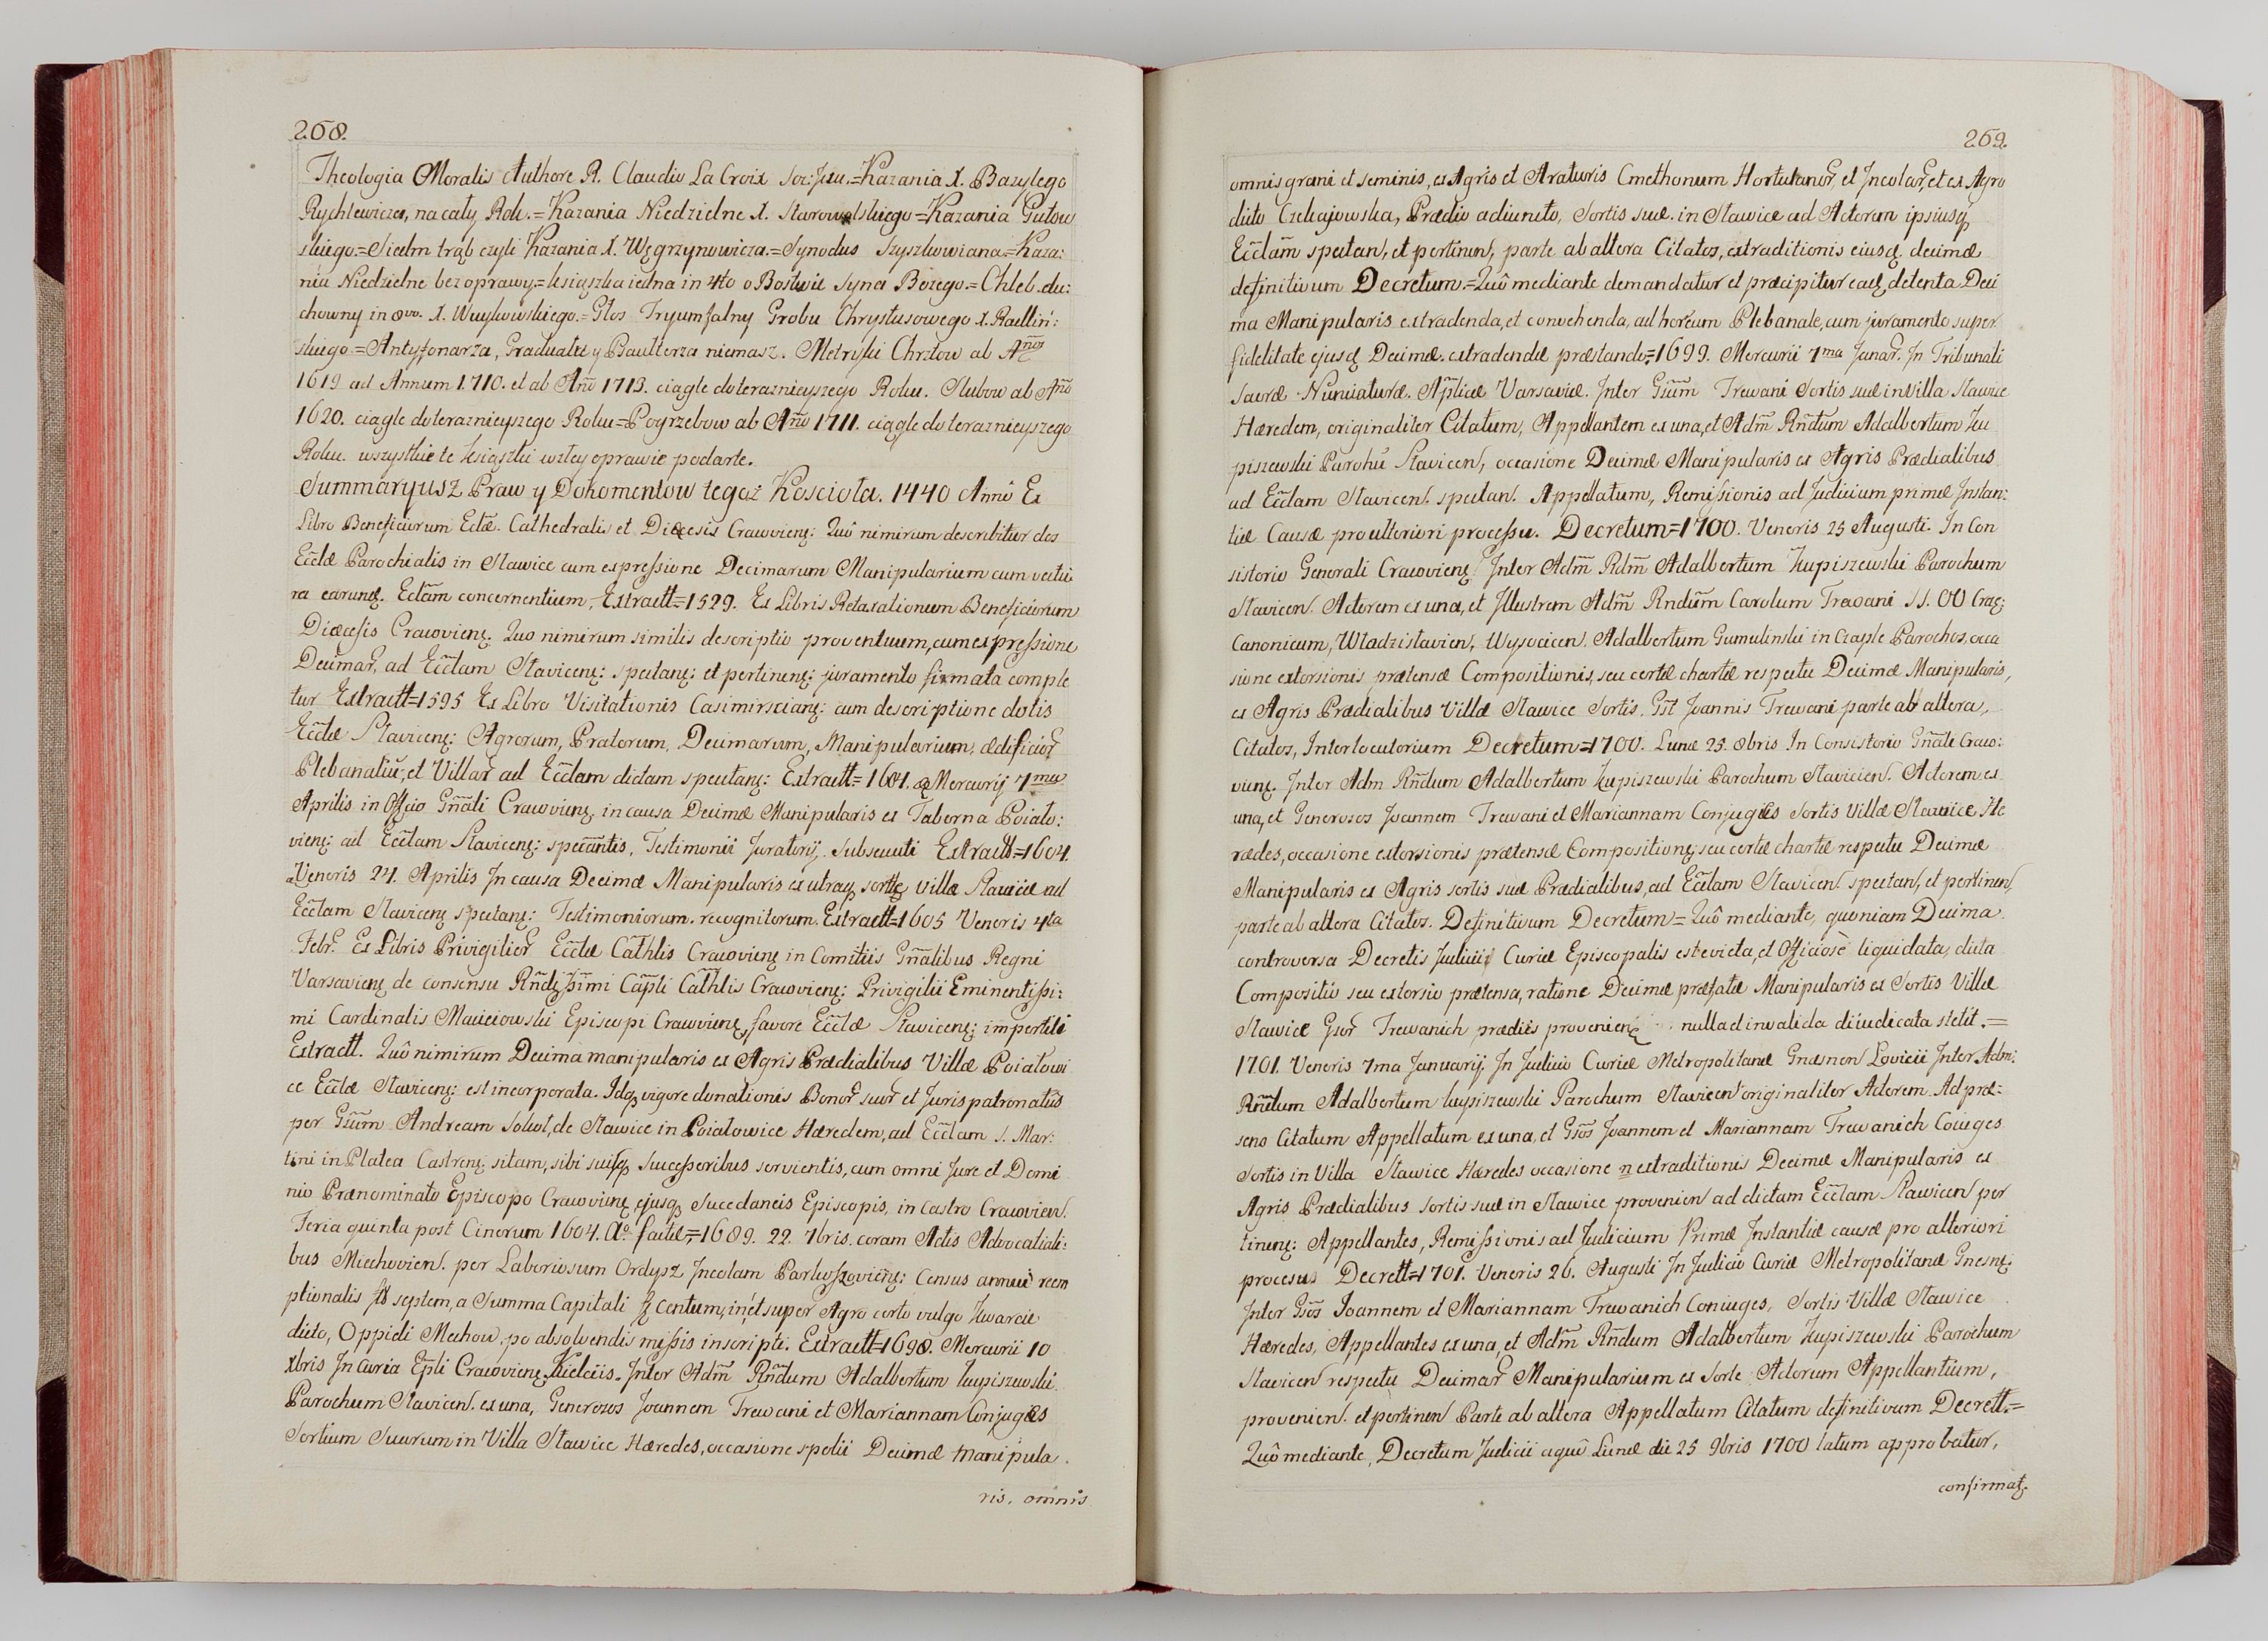 268.
Theologia Moralis Authore R. Claudio La Croix Soc: Jesu.=Kazania X. Bazylego
Rychlewicza, na cały Rok.=Kazania Niedzielne X. Starowolskiego=Kazania Gutow
skiego.=Siedm trąb czyli Kazania X. Węgrzynowicza.=Synodus Szyszkowiana=Kaza:
nia Niedzielne bez oprawy=ksiąszka iedna in 4to o Bostwie Syna Bożego.=Chleb du:
chowny in 8vo. X. Wuykowskiego.=Głos Tryumfalny Grobu Chrystusowego X. Raclliń:
skiego=Antyfonarza, Graduału y Psaulterza niemasz. Metryki Chrztow ab Annos
1619 ad Annum 1710. et ab Año 1713. ciągle do teraznieyszego Roku. Slubow ab Año
1620. ciągle do teraznieyszego Roku=Pogrzebow ab Año 1711. ciągle do teraznieyszego
Roku. wszystkie te ksiąszki w złey oprawie podarte.
Summaryusz Praw y Dokomentow tegoż Kościoła. 1440 Anno Ex
Libro Beneficiorum Ectæ. Cathedralis et Diæcesis Cracoviens: Quô nimirum describitur dos
Ecclæ Parochialis in Stawice cum expressione Decimarum Manipularium cum vectu
ra earund. Ectam concernentium, Extractt=1529. Ex Libris Retaxationum Beneficiorum
Diæcesis Cracoviens. Quo nimirum similis descriptio proventuum, cum expressione
Decimar, ad Ecclam Stavicens: spectans: et pertinens: juramento firmata comple
tur Extractt=1595 Ex Libro Visitationis Casimirscians: cum descriptione dotis
Ecclæ Stavicens: Agrorum, Pratorum, Decimarum, Manipularium, ædificior
Plebanaliu, et Villar ad Ecclam dictam spectans: Extractt=1601. Mercurij 7ma
Aprilis in Officio Gñali Cracoviens. in causa Decimæ Manipularis ex Taberna Poiato:
viens: ad Ecclam Stavicens: spectantis, Testimonii Juratorij. Subsecuti Extractt=1604.
Veneris 24. Aprilis In causa Decimæ Manipularis ex utraq sorte Villæ Stawice ad
Ecclam Stavicens spectans: Testimoniorum recognitorum. Extractt=1605 Veneris 4ta
Febr. Ex Libris Privigilior Ecclæ Cathlis Cracoviens in Comitiis Gñalibus Regni
Varsaviens de consensu Rñdissimi Capli Cathlis Cracoviens: Privigilii Eminentissi:
mi Cardinalis Macieiowski Episcopi Cracoviens, favore Ecclæ Stavicens: impertiti
Extractt. Quô nimirum Decima manipularis ex Agris Prædialibus Villæ Poiatowi
ce Ecclæ Stavicens: est incorporata. Idq vigore donationis Bonor suor et Juris patronatûs
per Gsum Andream Sokoł, de Stawice in Poiatowice Hæredem, ad Ecclam S. Mar:
tini in Platea Castrens sitam, sibi suisq Successoribus servientis, cum omni Jure et Domi
nio Prænominato Episcopo Cracoviens ejusq Succedaneis Episcopis, in castro Cracovien.
Feria quinta post Cinerum 1604. Ao. factæ,=1689. 22. 7bris. coram Actis Advocatiali:
bus Miechovien. per Laboriosum Ordysz Incolam Parkoszoviens: Census annui reem
ptionalis septem, a Summa Capitali Centum, in et super Agro certo vulgo Zwarcie
dicto, Oppidi Mechow. po absolvendis missis inscripti. Extractt=1698. Mercurii 10
Xbris In Curia Epli Cracoviens Kielciis. Inter Adm Rñdum Adalbertum Kupiszewski
Parochum Stavicen. ex una, Generosos Joannem Trewani et Mariannam Conjuges
Sortium Suarum in Villa Stawice Hæredes, occasione spolii Decimæ Manipula.
ris, omnis
269.
omnis grani et seminis, ex Agris et Araturis Cmethonum Hortulanor, et Incolar, et ex Agro
dicto Czekajowska, Prædio adiuncto, Sortis suæ in Stawice ad Actorem ipsiusq
Ecclam spectan, et pertinen, parte ab altera Citatos, extraditionis eiusd. decimæ
definitivum Decretum.=Quô mediante demandatur et præcipitur ead, detenta Deci
ma Manipularis extradenda, et convehenda, ad horeum Plebanale, cum juramento super
fidelitate ejusd Decimæ. extradendæ præstando=1699. Mercurii 7ma Januar. In Tribunali
Sacræ Nunciaturæ. Aplicæ Varsaviæ. Inter Gsum Trewani Sortis suæ in Villa Stawice
Hæredem, originaliter Citatum, Appellantem ex una, et Adm Rñdum Adalbertum Ku
piszewski Parochu Stavicen, occasione Decimæ Manipularis ex Agris Prædialibus
ad Ecclam Stavicen. spectan. Appellatum, Remissionis ad Judicium primæ Instan:
tiæ Causæ pro ulteriori processu. Decretum=1700. Veneris 25 Augusti. In Con
sistorio Generali Cracoviens Inter Adm Rdm Adalbertum Kupiszewski Parochum
Stavicen. Actorem ex una, et Illustrem Adm Rndum Carolum Trewani SS. OO Crac;
Canonicum, Wladzislavien, Wysocicen. Adalbertum Gumulinski in Czaple Parochos, occa
sione extorsionis prætensæ Compositionis, seu certæ chartæ respectu Decimæ Manipularis,
ex Agris Prædialibus Villæ Stawice Sortis, Gsi Joannis Trewani parte ab altera,
Citatos, Interlocutorium Decretum=1700. Lunæ 25. 8bris In Consistorio Gñali Craco:
viens. Inter Adm Rndum Adalbertum Kupiszewski Parochum Stavicien. Actorem ex
una, et Generosos Joannem Trewani et Mariannam Conjuges Sortis Villæ Stawice Hæ
rædes, occasione extorsionis prætensæ Compositions, seu certæ chartæ respectu Decimæ
Manipularis ex Agris sortis suæ Prædialibus, ad Ecclam Stavicen. spectan, et pertinen,
parte ab altera Citatos. Definitivum Decretum=Quô mediante, quoniam Decima
controversa Decretis Judicii Curiæ Episcopalis est evicta, et Officiosè liquidata, dicta
Compositio seu extorsio prætensa, ratione Decimæ præfatæ Manipularis ex Sortis Villæ
Stawice Gsor Trewanich prædiis provenien nulla et invalida diiudicata stetit.=
1701. Veneris 7ma Januarij. In Judicio Curiæ Metropolitanæ Gnesnen Lovicii Inter Adm:
Rñdum Adalbertum Kupiszewski Parochum Stavicen originaliter Actorem. Ad præ:
sens Citatum Appellatum ex una, et Gsos Joannem et Mariannam Trewanich Coiuges
Sortis in Villa Stawice Hæredes occasione n extraditionis Decimæ Manipularis ex
Agris Prædialibus sortis suæ in Stawice provenien ad dictam Ecclam Stawicen per
tinens: Appellantes, Remissionis ad Judicium Primæ Instantiæ causæ pro alteriori
procesus Decrett=1701. Veneris 26. Augusti In Judicio Curiæ Metropolitanæ Gnesns.
Inter Gsos Ioannem et Mariannam Trewanich Coniuges, Sortis Villæ Stawice
Hæredes, Appellantes ex una, et Adm Rñdum Adalbertum Kupiszewski Parochum
Stavicen respectu Decimar Manipularium ex Sorte Actorum Appellantium,
provenien. et pertinen Parte ab altera Appellatum Citatum definitivum Decrett.=
Quô mediante, Decretum Judicii a quô Lunæ die 25 9bris 1700 latum approbatur,
confirmat.